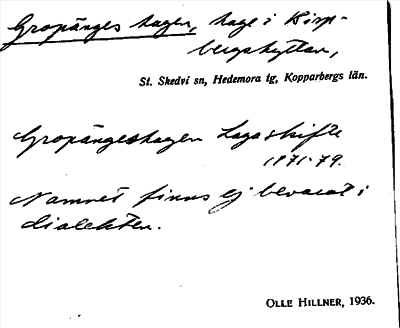 Gropänges hagen, hage i Kirp-
bergshyttan,
St. Skedvi sn, Hedemora tg, Kopparbergs län.
Gropängeshagen Laga skifte
1871-79.
Namnet finns ej bevarat i
dialekten.
OLLE HILLNER, 1936.